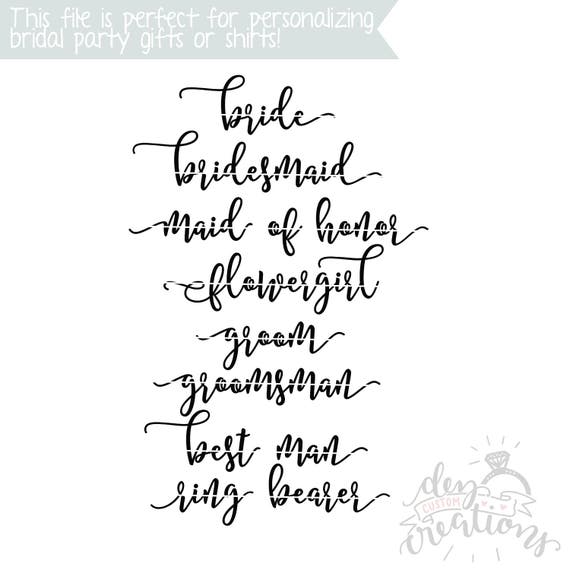 This file is perfect for personalizing
bridal party gifts or shirts!
bride
bridesmaid
maid of honor
flowergirl
groom
groomsman
best man
ring bearer
dez
CUSTOM
creations